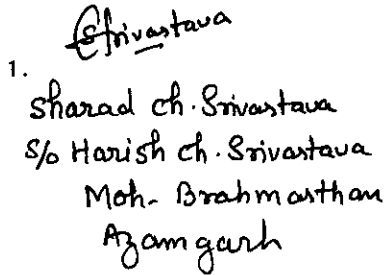 Srivastava
1.
Sharad Ch. Srivastava
S/o Harish Ch. Srivastava
Moh- Brahmasthan
Azamgarh